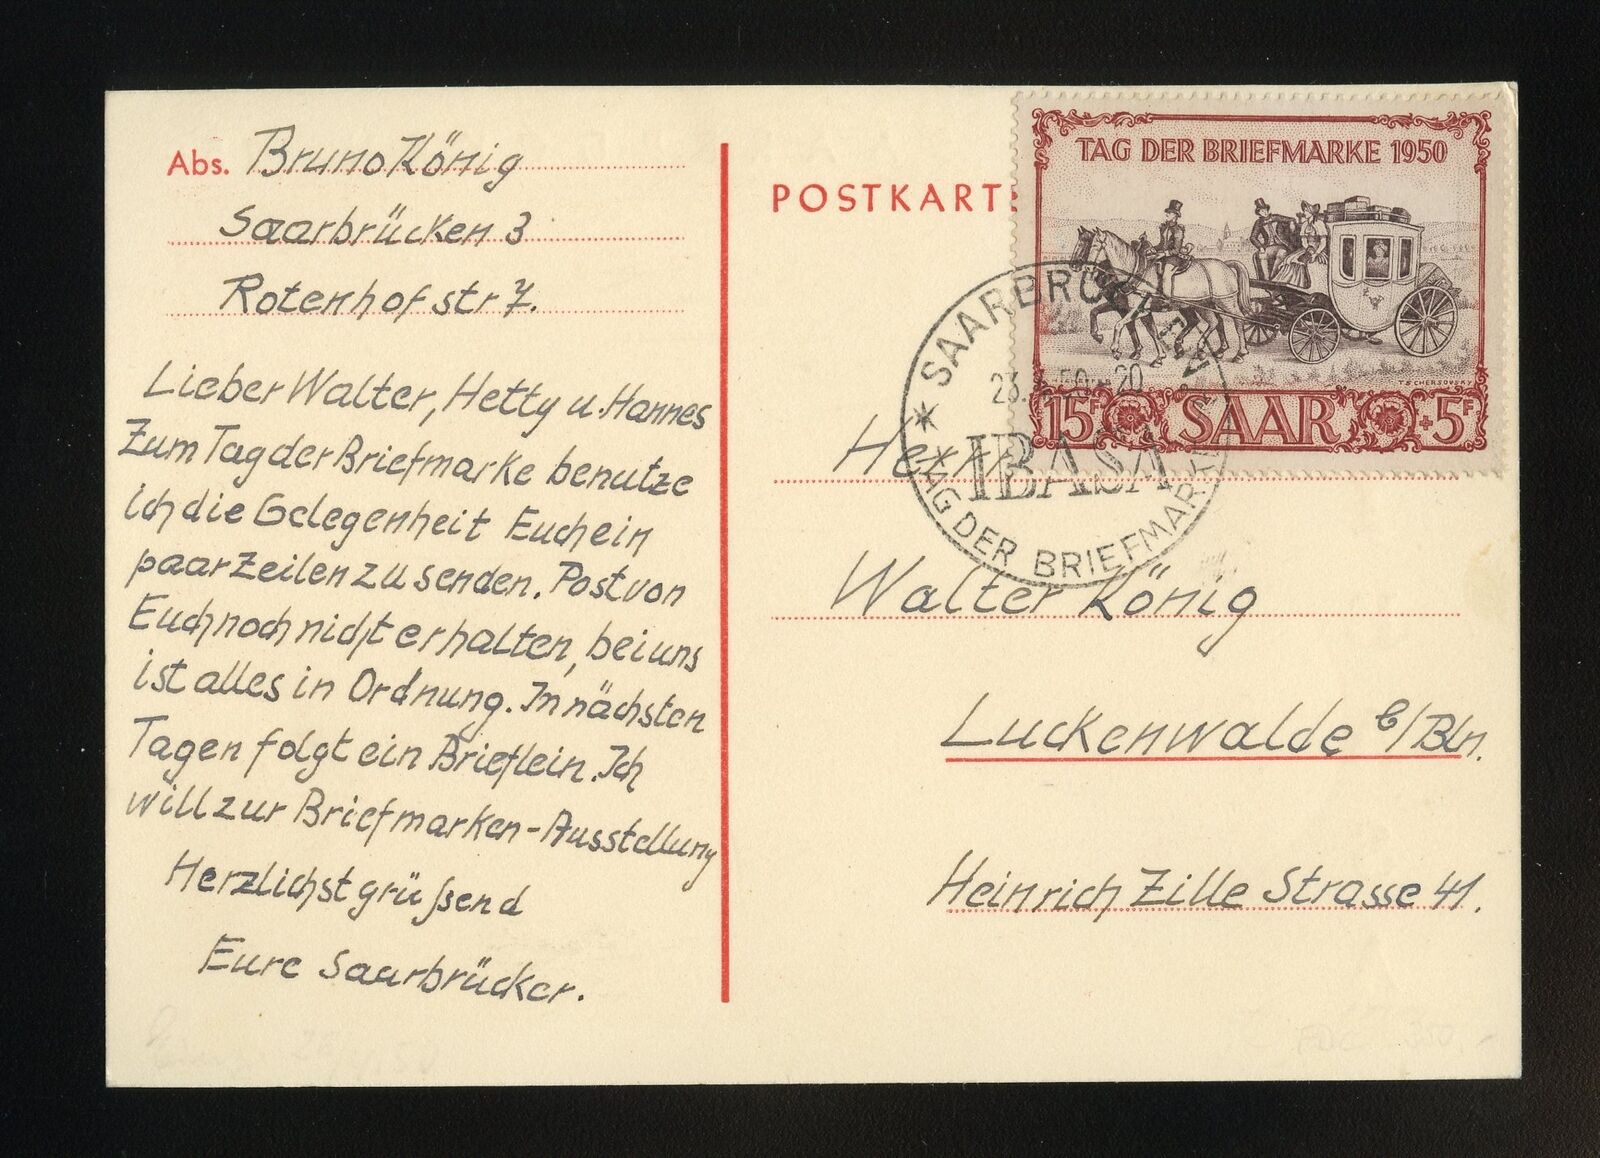 Abs. Bruno König
Saarbrücken 3
Rotenhofstr 7.
Lieber Walter, Hetty u. Hannes
Zum Tag der Briefmarke benutze
ich die Gelegenheit Euch ein
paar Zeilen zu senden. Post von
Euch noch nicht erhalten, bei uns
ist alles in Ordnung. In nächsten
Tagen folgt ein Brieflein. Ich
will zur Briefmarken-Ausstellung
Herzlichst grüßend
Eure Saarbrücker.
POSTKARTE
TAG DER BRIEFMARKE 1950
T.S CHERSOVSKY
15F SAAR +5F
SAARBRÜCKEN 2
23. 4. 50 - 20
IBASA
TAG DER BRIEFMARKE
Herrn
Walter König
Luckenwalde b/Bln.
Heinrich Zille Strasse 41.